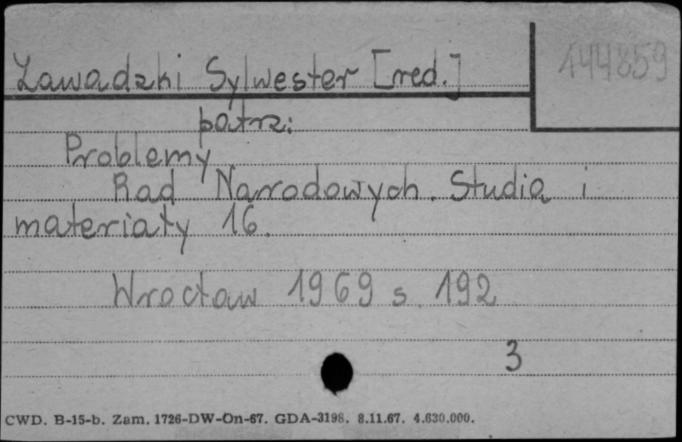 Zawadzki Sylwester [red.]
144859
patrz:
Problemy
Rad Narodowych. Studia i
materiały 16.
Wrocław 1969 s. 192
3
CWD. B-15-b. Zam. 1726-DW-On-67. GDA-3198. 8.11.67. 4.630.000.